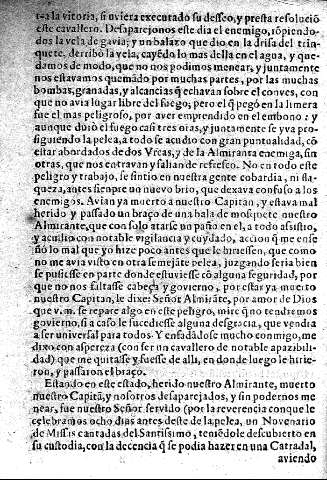 tra la vitoria, si uviera executado su desseo, y presta resoluciō
este cavallero. Desaparejonos este dia el enemigo, rōpiendo-
dos la vela de gavia; y un balazo que dio en la drisa del trin-
quete, derribò la vela, cayēdo lo mas della en el agua, y que-
damos de modo, que no nos podimos menear, y juntamente
nos estavamos quemādo por muchas partes, por las muchas
bombas, granadas, y alcancias q̄ echavan sobre el conves, con
que no avia lugar libre del fuego; pero el q̄ pegó en la limera
fue el mas peligroso, por aver emprendido en el embono: y
aunque durò el fuego casi tres oras, y juntamente se yva pro-
siguiendo la pelea, a todo se acudio con gran puntualidad, cō
estar abordados de dos Vrcas, y de la Almiranta enemiga, sin
otras, que nos entravan y salian de refresco. No en todo este
peligro y trabajo, se sintio en nuestra gente cobardia, ni fla-
queza, antes sienpre un nuevo brio, que dexava confuso a los
enemigos. Avian ya muerto a nuestro Capitan, y estava mal
herido y passado un braço de una bala de mosquete nuestro
Almirante, que con solo atarse un paño en el, a todo asistio,
y acudio con notable vigilancia y cuydado, accion q̄ me ense
ñó lo mal que yo hize poco antes que le hiriessen, que como
no me avia visto en otra semejāte pelea, juzgando seria bien
se pusiesse en parte donde estuviesse cō alguna seguridad, por
que no nos faltasse cabeça y govierno, por estar ya muerto
nuestro Capitan, le dixe: Señor Almirāte, por amor de Dios
que v.m. se repare algo en este peligro, mire q̄ no tendremos
govierno, si a caso le sucediesse alguna desgracia, que vendria
a ser universal para todos. Y enfadādose mucho conmigo, me
dixo con aspereza (con ser un cavallero de notable apazibili-
dad) que me quitasse y fuesse de alli, en donde luego le hirie-
ron, y passaron el braço.
Estando en este estado, herido nuestro Almirante, muerto
nuestro Capitā, y nosotros desaparejados, y sin podernos me
near, fue nuestro Señor servido (por la reverencia con que le
celebramos ocho dias antes deste de la pelea, un Novenario
de Missas cantadas del Santissimo, teniēdole descubierto en
su custodia, con la decencia q̄ se podia hazer en una Catradal,
aviendo